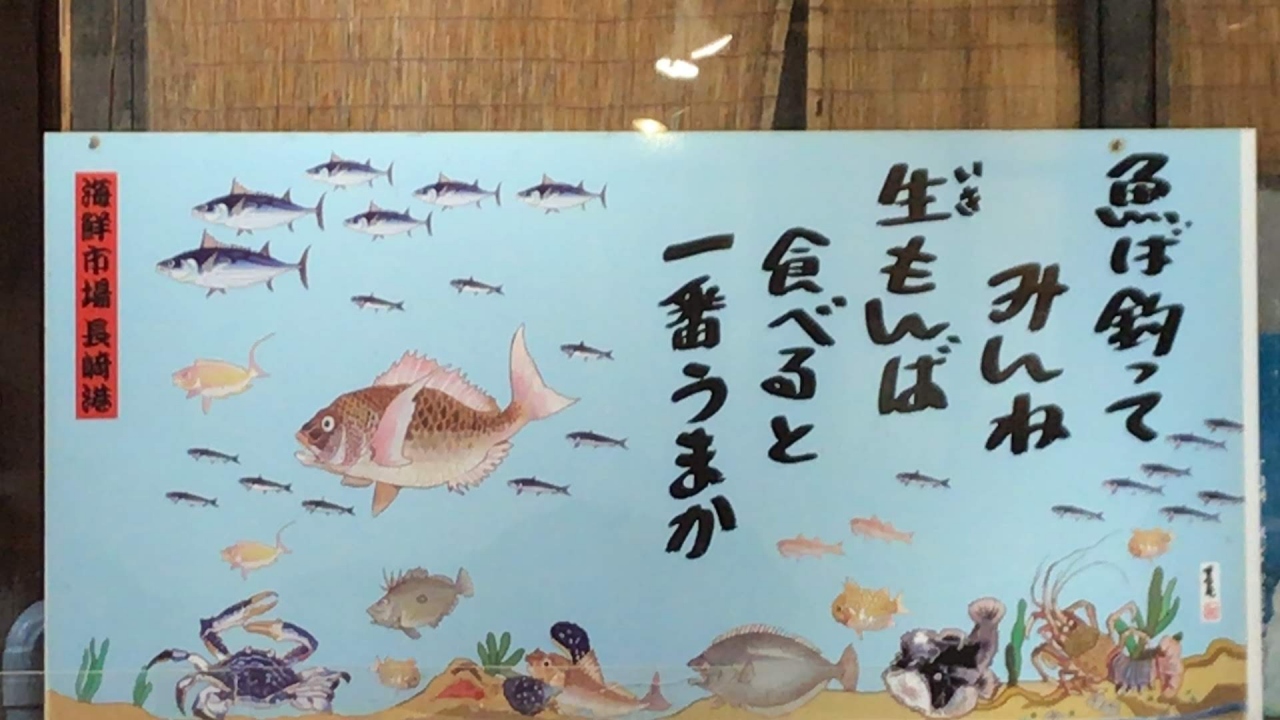 魚ば釣って
みんね
生もんば
いき
食べると
一番うまか
海鮮市場長崎港